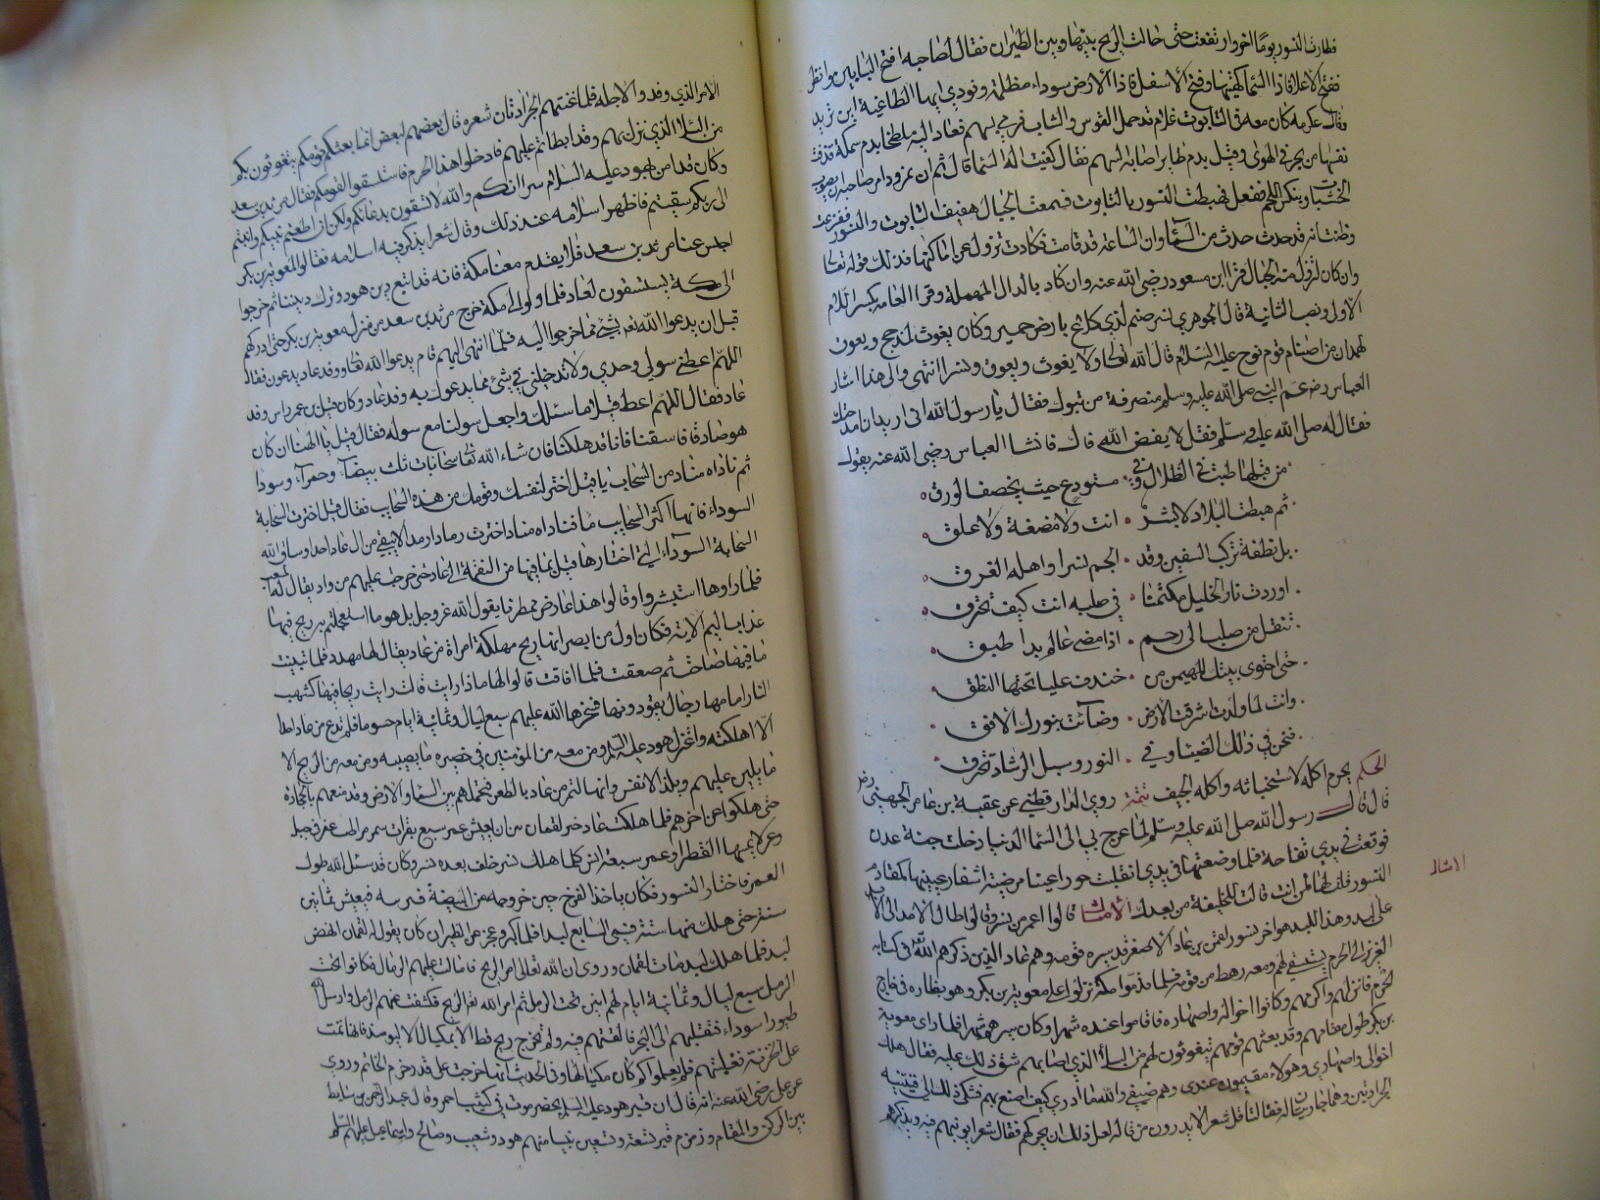 فطارت النسور يوما اخر وارتفعت حتى حالت الريح بينها وبين الطيران فقال لصاحبه افتح البابين وانظر
ففتح الاعلا فاذا السما كهيئتها وفتح الاسفل فاذا الارض سوداء مظلمة ونودي ايها الطاغية اين تريد
وقال عكرمة كان معه في التابوت غلام قد حمل القوس والنشاب فرمى بسهم فعاد اليه ملطخا بدم سمكة قذفت
نفسها من بحر في الهوى وقيل بدم طاير اصابه السهم فقال كفيت اله السما قال ثم ان نمرود امر صاحبه ان يصوب
الخشبات وينكس اللحم ففعل فهبطت النسور بالتابوت فسمعت الجبال هفيف التابوت والنسور ففزعت
وظنت انه قد حدث حدث من السما وان الساعة قد قامت فكادت تزول عن اماكنها فذلك قوله تعالى
وان كان لتزول منه الجبال قرا ابن مسعود رضي الله عنه وان كاد بالدال المهملة وقرا العامة بكسر اللام
الاولى ونصب الثانية قال الجوهري نسر صنم لذي كلاع بارض حمير وكان يغوث لمذحج ويعوق
لهمدان من اصنام قوم نوح عليه السلام قال الله تعالى ولا يغوث ويعوق ونسرا انتهى والى هذا اشار
العباس رضي عم النبي صلى الله عليه وسلم منصرفه من تبوك فقال يا رسول الله اني اريد ان امدحك
فقال له صلى الله عليه وسلم فقل لا يفضض الله فاك فانشا العباس رضي الله عنه يقول
من قبلها طبت في الظلال وفي · مستودع حيث يخصف الورق
ثم هبطت البلاد لا بشر · انت ولا مضغة ولا علق
بل نطفة تركب السفين وقد · الجم نسرا واهله الغرق
وردت نار الخليل مكتتما · في صلبه انت كيف تحترق
تنقل من صلب الى رحم · اذا مضى عالم بدا طبق
حتى احتوى بيتك المهيمن من · خندف عليا تحتها النطق
وانت لما ولدت اشرقت الارض · وضآءت بنورك الافق
فنحن في ذلك الضيا وفي · النور وسبل الرشاد تخترق
الحكم يحرم اكله لاستخباثه واكله الجيف تتمة روى الدارقطني عن عقبة بن عامر الجهني رضي
قال قال رسول الله صلى الله عليه وسلم لما عرج بي الى السما الدنيا دخلت جنة عدن
فوقعت في يدي تفاحة فلما وضعتها في يدي انقلبت حورا عينا مرضية اشفار عينيها كمقاديم
النسور فقلت لها لمن انت قالت للخليفة من بعدك الامثال قالوا اعمر من نسر وقالوا طال الابد الى الابد
على لبد وهذا اللبد هو اخر نسور لقمن بن عاد الاصغر
العزيز الى الحرم يستسقي لهم ومعه رهط من قومه فلما قدموا مكة نزلوا على معوية بن بكر وهو بظاهره في خارج
الحرم فانزلهم واكرمهم وكانوا اخواله واصهاره فاقاموا عنده شهرا وكان سيرهم شهرا فلما راى معوية
بن بكر طول مقامهم وقد بعثهم قومهم يتغوثون لهم من البلاء الذي اصابهم شق ذلك عليه فقال هلك
اخوالي واصهاري وهولاء مقيمون عندي وهم ضيفي والله ما ادري كيف اصنع بهم فشكى ذلك الى قينتيه
الجرادتين وهما جاريتان له فقالتا قل شعرا لا يدرون من قاله لعل ذلك ان يحركهم فقال شعرا يونبهم فيه ويذكرهم
الامثال
الامر الذي وفدوا لاجله فلما غنتهم الجرادتان شعره قال بعضهم لبعض انما بعثكم قومكم يتغوثون بكم
من البلاء الذي نزل بهم وقد ابطاتم عليهم فادخلوا هذا الحرم فاستسقوا لقومكم فقال مرثد بن سعد
وكان قد امن بهود عليه السلام سرا انكم والله لا تسقون بدعائكم ولكن ان اطعتم نبيكم وانبتم
الى ربكم سقيتم فاظهر اسلامه عند ذلك وقال شعرا يذكر فيه اسلامه فقالوا لمعوية بن بكر
احبس عنا مرثد بن سعد فلا يقدم معنا مكة فانه قد اتبع دين هود وترك ديننا ثم خرجوا
الى مكة يستسقون لعاد فلما ولوا الى مكة خرج مرثد بن سعد من منزل معوية بن بكر حتى ادركهم
قبل ان يدعوا الله تعالى بشيء مما خرجوا اليه فلما انتهى اليهم قام يدعوا الله تعالى ووفد عاد يدعون فقال
اللهم اعطني سولي وحدي ولا تدخلني في شيء مما يدعوك به وفد عاد وكان قيل بن عمر راس وفد
عاد فقال اللهم اعط قيلا ما سئلك واجعل سولنا مع سوله فقال قيل يا الهنا ان كان
هود صادقا فاسقنا فانا قد هلكنا فانشاء الله تعالى سحابات ثلث بيضآء وحمرآء وسودا
ثم ناداه مناد من السحاب يا قيل اختر لنفسك وقومك من هذه السحايب فقال قيل اخترت السحابة
السوداء فانها اكثر السحايب ماء فناداه مناد اخترت رمادا رمددا لا يبقي من ال عاد احدا وساق الله
السحابة السودآء التي اختارها قيل بما فيها من النقمة الى عاد حتى خرجت عليهم من واد يقال له
فلما راوها استبشروا وقالوا هذا عارض ممطرنا يقول الله عز وجل بل هو ما استعجلتم به ريح فيها
عذاب اليم الاية فكان اول من ابصر انها ريح مهلكة امراة من عاد يقال لها مهدد فلما تبينت
ما فيها صاحت ثم صعقت فلما افاقت قالوا لها ماذا رايت قالت رايت ريحا فيها كشهب
النار امامها رجال يقودونها فسخرها الله عليهم سبع ليال وثمانية ايام حسوما فلم تدع من عاد احدا
الا اهلكته واعتزل هود عليه السلام ومن معه من المومنين في حضيرة ما يصيبه ومن معه من الريح الا
ما يلين عليهم ويلذ الانفس وانها لتمر من عاد بالظعن فتحملهم بين السما والارض وتدمغهم بالحجارة
حتى هلكوا عن اخرهم فلما هلكت عاد خير لقمان بين ان يعيش عمر سبع بقرات سمر من اظب عفر في جبل
وعر لا يمسها القطر او عمر سبعة انسر كلما هلك نسر خلف بعده نسر وكان قد سئل الله طول
العمر فاختار النسور فكان ياخذ الفرخ حين خروجه من البيضة فيربيه فيعيش ثمانين
سنة حتى هلك منها ستة فسمى السابع لبدا فلما كبر وعجز عن الطيران كان يقول له لقمان انهض
لبد فلما هلك لبد مات لقمان وروي ان الله تعالى امر الريح فامالت عليهم الرمال فكانوا تحت
الرمل سبع ليال وثمانية ايام لهم انين تحت الرمل ثم امر الله تعالى الريح فكشفت عنهم الرمل وارسل الله
طيورا سوداء فنقلتهم الى البحر فالقتهم فيه ولم تخرج ريح قط الا بمكيال الا يومئذ فانها عتت
على الخزنة فغلبتهم فلم يعلموا كم كان مكيالها وفي الحديث انها خرجت على قدر خرم الخاتم وروي
عن علي رضي الله عنه انه قال ان قبر هود عليه السلام بحضرموت في كثيب احمر وقال عبد الرحمن بن سابط
بين الركن والمقام وزمزم قبر تسعة وتسعين نبيا منهم هود وشعيب وصالح واسماعيل عليهم السلم